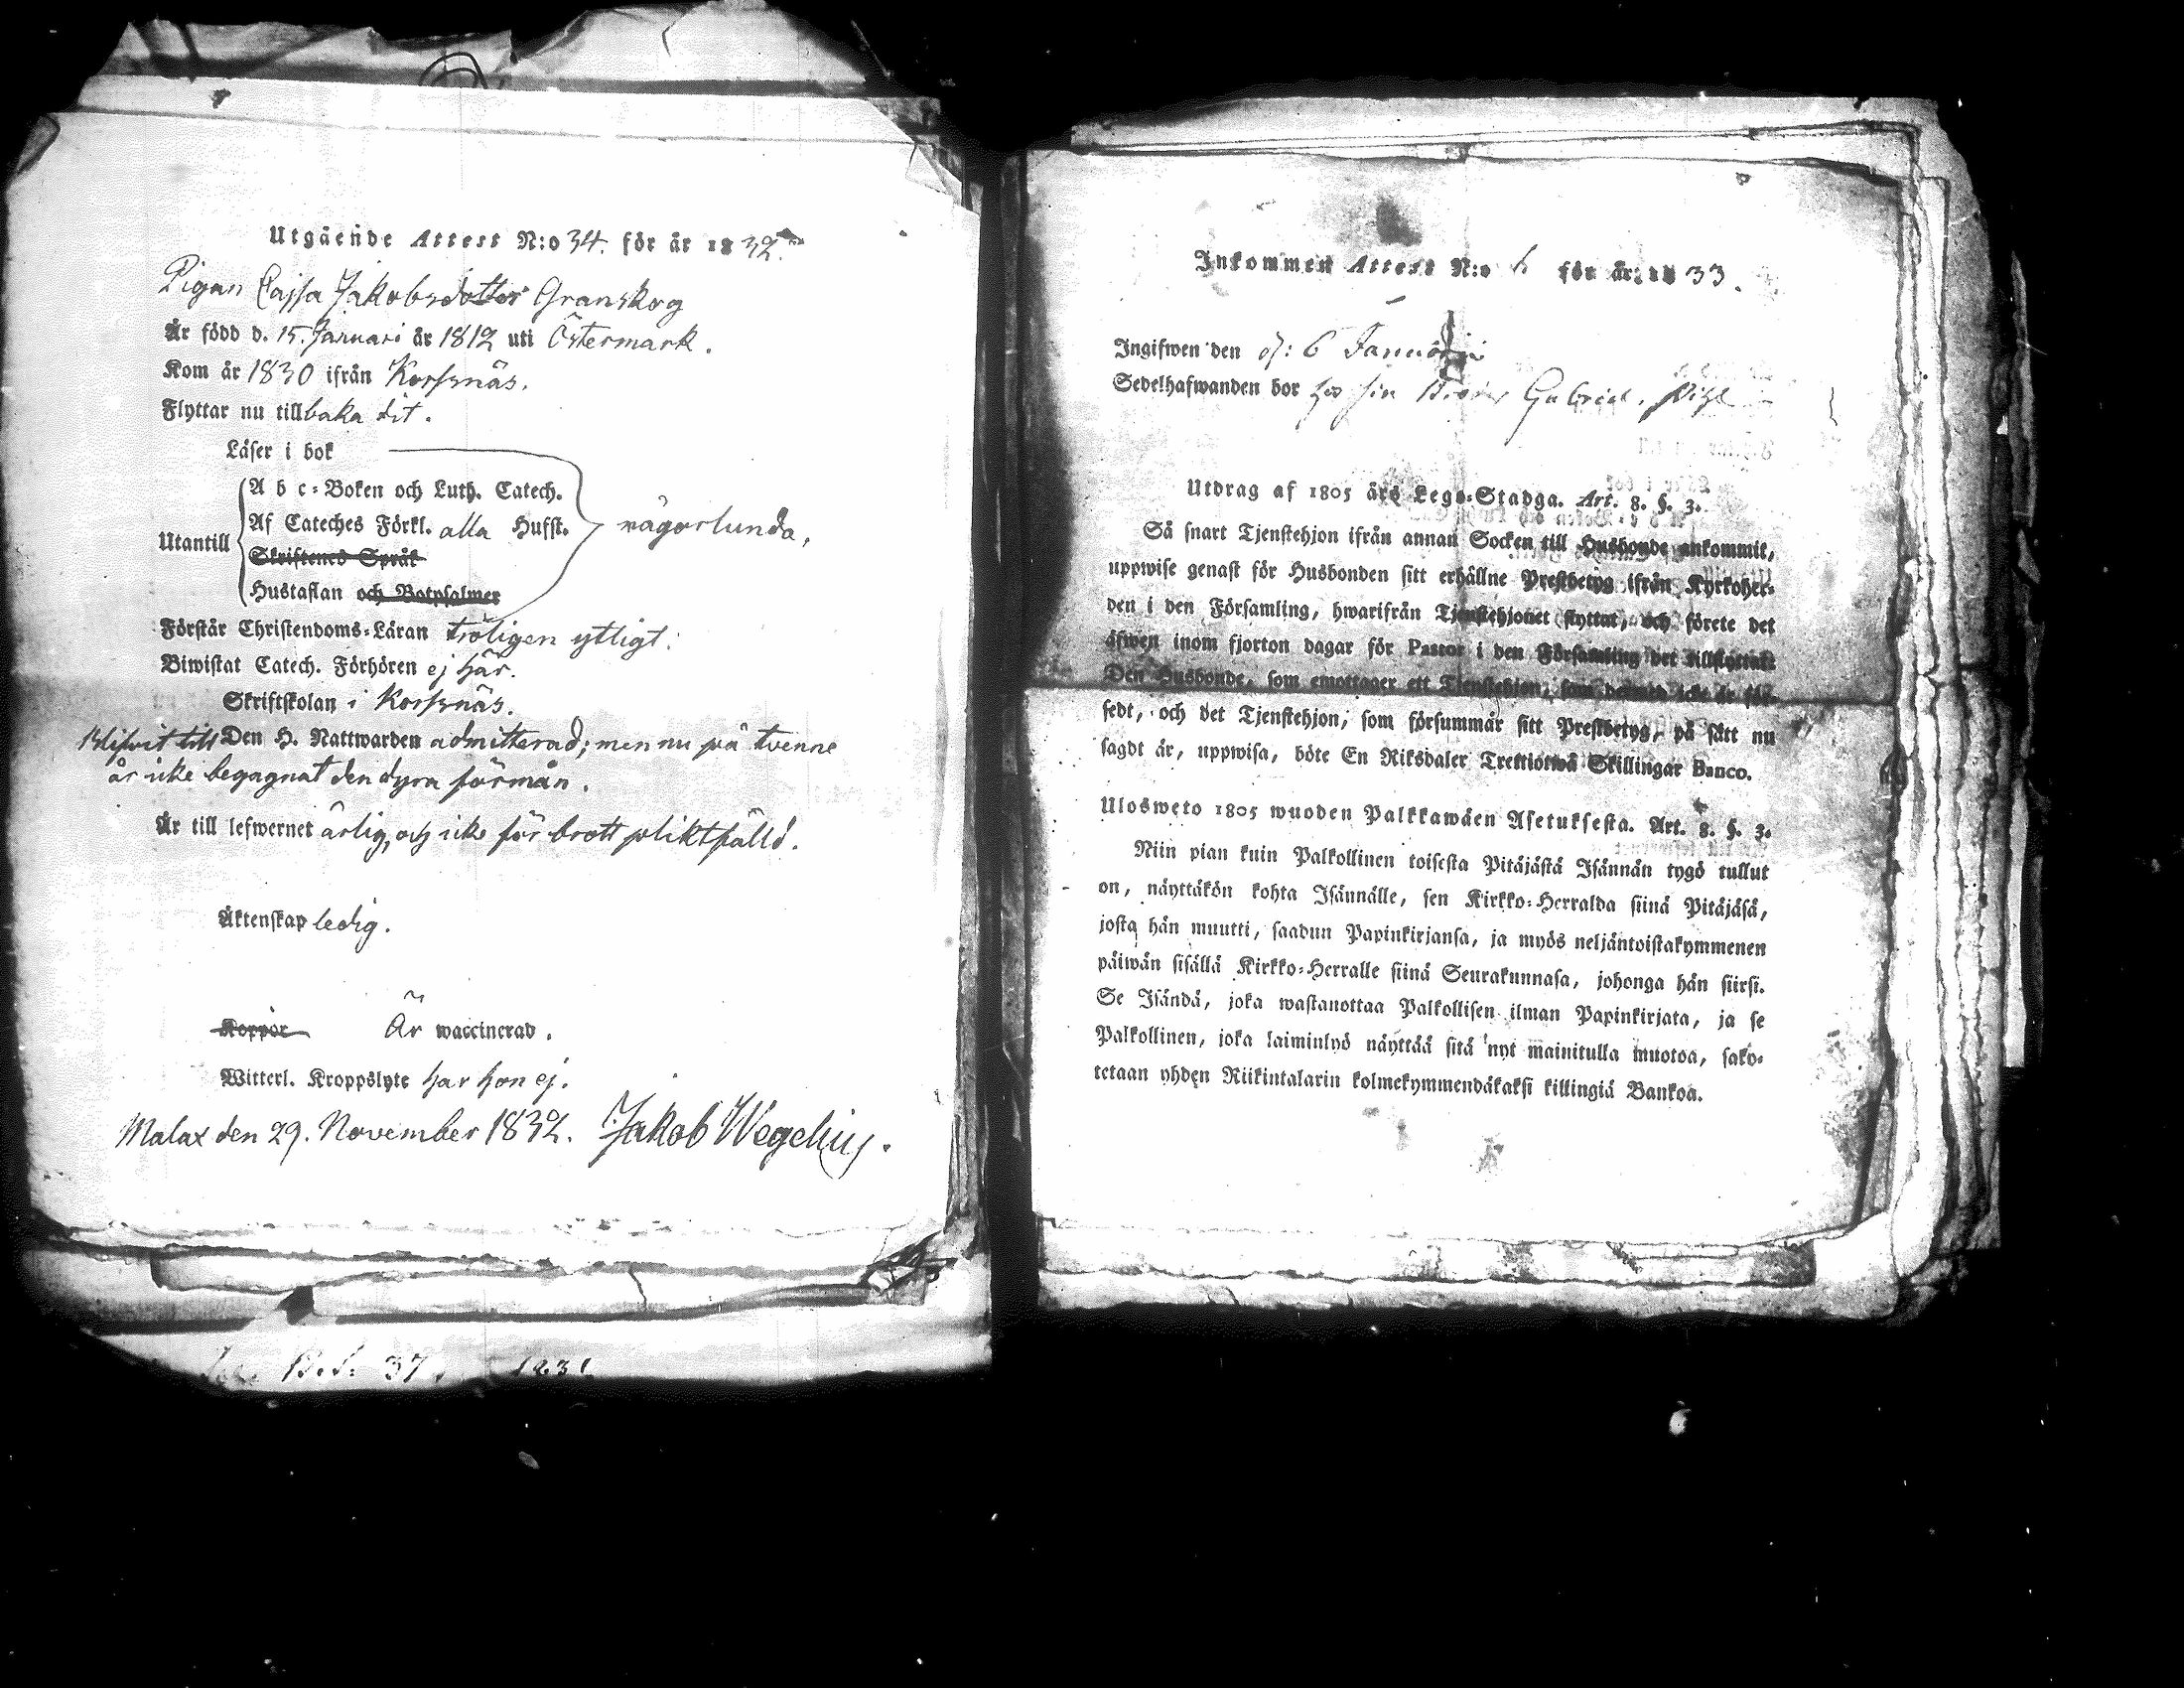 Utgående Attest N:o 34. för år 1832.
Pigan Cajsa Jakobsdotter Granskog
Är född d. 15. Januari år 1812 uti Östermark.
Kom år 1830 ifrån Korssnäs.
Flyttar nu tillbaka dit.
Läser i bok
A b c-Boken och Luth. Catech.
Af Cateches Förkl. alla Hufst. någorlunda,
Utantill
Skriftenes Språk
Hustaflan och Botpsalmer
Förstår Christendoms-Läran troligen ytligt.
Biwistat Catech. Förhören ej här.
Skriftskolan i Korssnäs.
Blifvit till Den H. Nattwarden admitterad; men nu på tvenne
år icke begagnat den dyra förmån.
Är till lefwernet ärlig, och icke för brott pliktfälld.
Äktenskap ledig.
Koppor Är waccinerad.
Witterl. Kroppslyte har hon ej.
Malax den 29. November 1832. Jakob Wegelius.
37. 1831
Inkommen Attest N:o 6 för år 1833.
Ingifwen den d: 6 Januari
Sedelhafwanden bor hos sin Gabriel
Utdrag af 1805 års Lego-Stadga. Art. 8. §. 3.
Så snart Tjenstehjon ifrån annan Socken till Husbonde ankommit,
uppwise genast för Husbonden sitt erhållne Prestbetyg ifrån Kyrkoher-
den i den Församling, hwarifrån Tjenstehjonet flyttat, och förete det
äfwen inom fjorton dagar för Pastor i den Församling det tillflyttat.
Den Husbonde, som emottager ett Tjenstehjon, som dermed icke är för-
sedt, och det Tjenstehjon, som försummar sitt Prestbetyg, på sätt nu
sagdt är, uppwisa, böte En Riksdaler Trettiotwå Skillingar Banco.
Ulosweto 1805 wuoden Palkkawäen Asetuksesta. Art. 8. §. 3.
Niin pian kuin Palkollinen toisesta Pitäjästä Isännän tygö tullut
on, näyttäkön kohta Isännälle, sen Kirkko-Herralda siinä Pitäjäsä,
josta hän muutti, saadun Papinkirjansa, ja myös neljäntoistakymmenen
päiwän sisällä Kirkko-Herralle siinä Seurakunnasa, johonga hän siirsi.
Se Isändä, joka wastanottaa Palkollisen ilman Papinkirjata, ja se
Palkollinen, joka laiminlyö näyttää sitä nyt mainitulla muotoa, sako-
tetaan yhden Riikintalarin kolmekymmendäkaksi killingiä Bankoa.